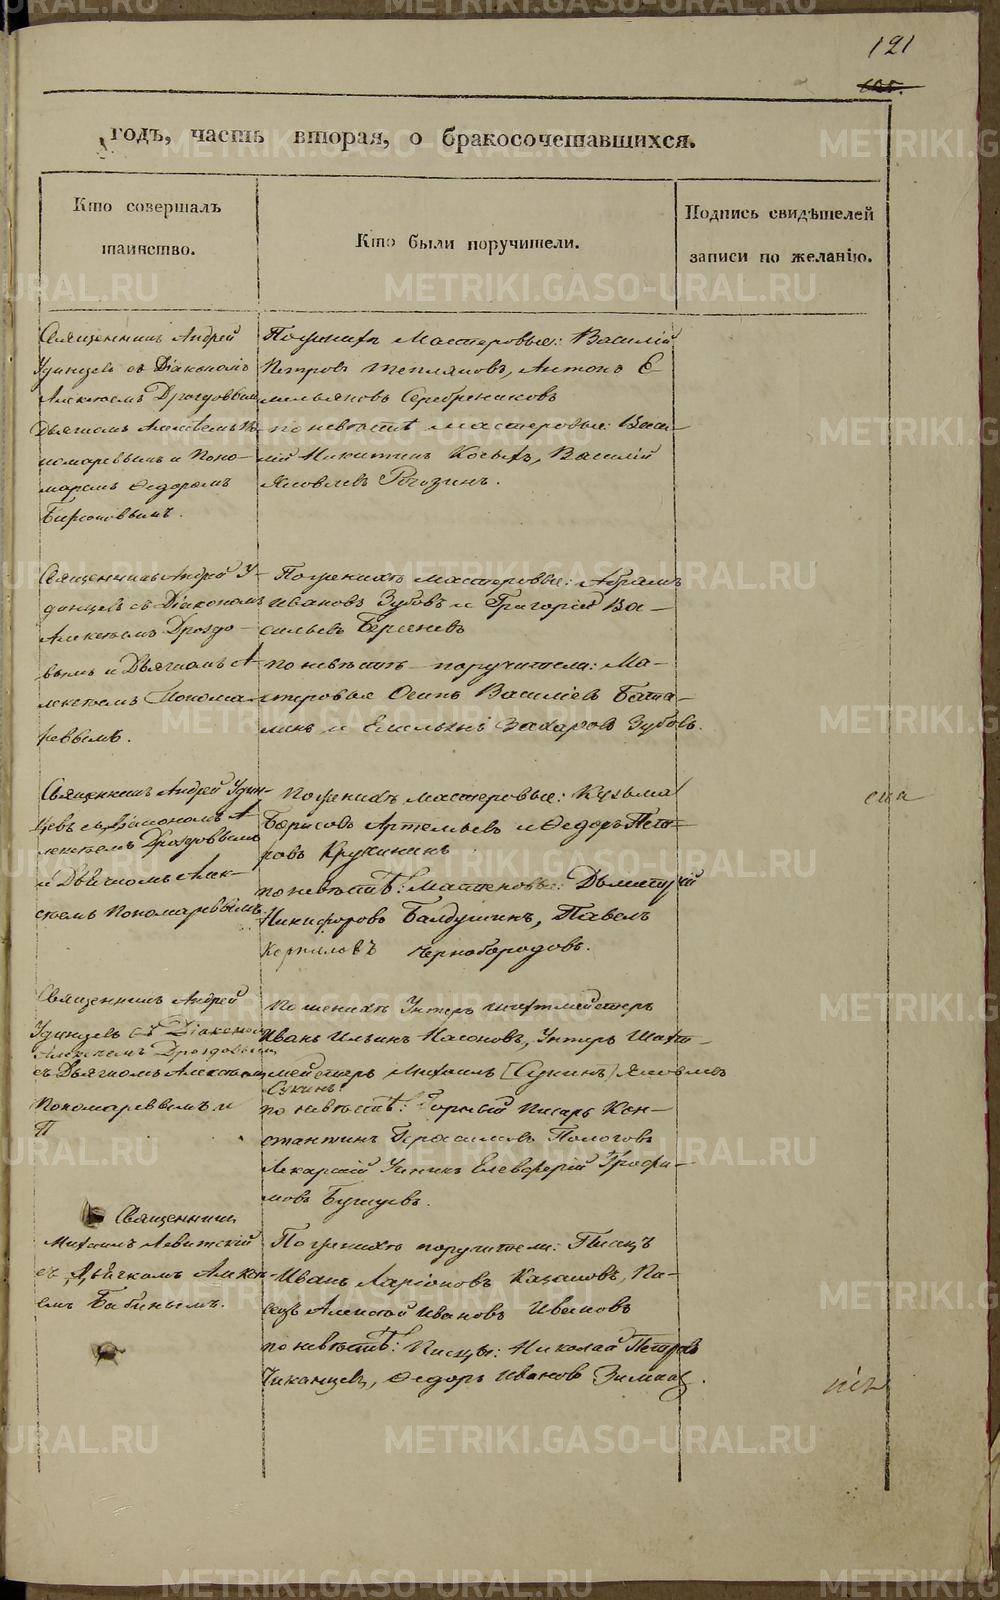 121
годъ, часть вторая, о бракосочетавшихся.
Кто совершалъ
таинство.
Кто были поручители.
Подпись свидѣтелей
записи по желанію.
Священникъ Андрей
Удинцевъ съ Діакономъ
Алексѣемъ Дроздовымъ
Дьячкомъ Алексѣемъ По-
номаревымъ и Поно-
маремъ Ѳедоромъ
По женихѣ Мастеровые: Василій
Петровъ Тепляковъ, Антонъ Е
мельяновъ Серебрениковъ
по невѣстѣ мастеровые: Васи-
лій Никитинъ Косыхъ, Василій
Яковлевъ Рогозинъ.
Священникъ Андрей У-
динцевъ съ Діакономъ
Алексѣемъ Дроздо-
вымъ и Дьячкомъ А-
лексѣемъ Понома-
ревымъ.
По женихѣ мастеровые: Абрамъ
Ивановъ Зубовъ и Григорій Ва-
сильевъ Берсеневъ
по невѣстѣ поручители: Ма-
стеровые Осипъ Василіевъ Бата-
линъ и Емельянъ Захаровъ Зубовъ.
Священникъ Андрей Удин-
цевъ съ Діакономъ А-
лексѣемъ Дроздовымъ
и Дьячкомъ Алек-
сѣемъ Пономаревымъ
По женихѣ мастеровые: Кузьма
Борисовъ Артемьевъ и Ѳедоръ Пет-
ровъ Кружининъ
по невѣстѣ: Мастеровые: Дьмитрій
Никифоровъ Балдушинъ, Павелъ
Корниловъ Чернобородовъ.
Священникъ Андрей
Удинцевъ съ Діакономъ
Алексѣемъ Дроздовымъ
съ Дьячкомъ Алексѣемъ
Пономаревымъ и
П
По женихѣ Унтеръ шихтмейстеръ
Иванъ Ильинъ Насоновъ, Унтеръ Шихт-
мейстеръ Михаилъ [Сукинъ] Яковлевъ
Сукинъ
по невѣстѣ: Горный Писарь Кон-
стантинъ Герасимовъ Пологовъ
Лекарскій Ученикъ Елевферій Трофи-
мовъ Бушуевъ.
Священникъ
Михаилъ Левитскій
съ Дьячкомъ Алексѣ-
емъ Бабинымъ.
По женихѣ поручители: Писецъ
Иванъ Ларіоновъ Казанцовъ, Пи-
сецъ Алексѣй Ивановъ Ивановъ
по невѣстѣ: Писцы: Николай Петровъ
Чиканцевъ, Ѳедоръ Ивановъ Зиминъ.
METRIKI.GASO-URAL.RU